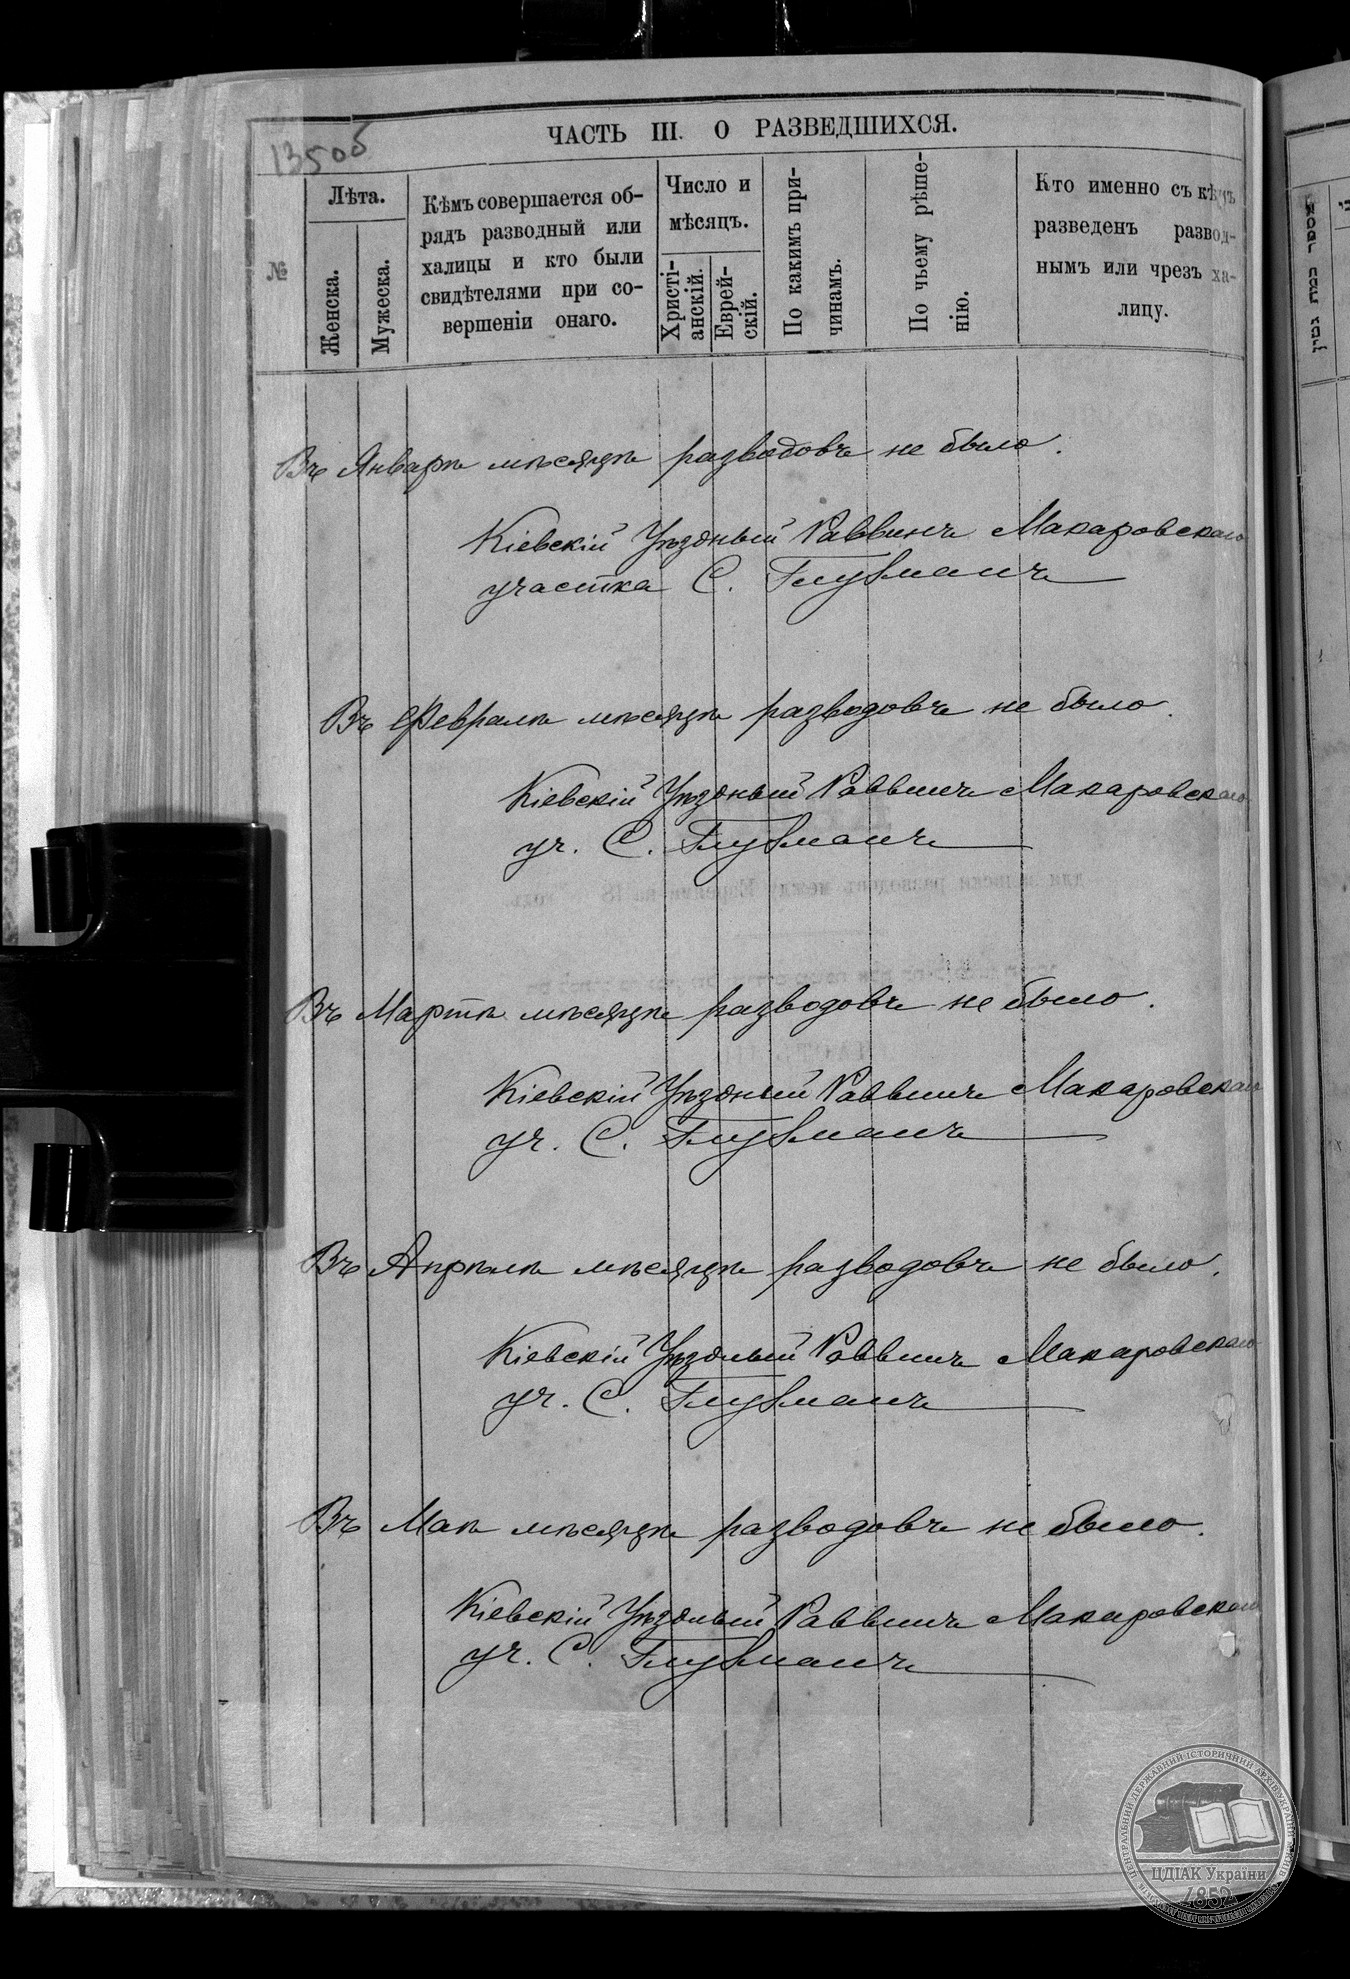 1350б
ЧАСТЬ III. О РАЗВЕДШИХСЯ.
№
Лѣта.
Женска.
Мужеска.
Кѣмъ совершается об-
рядъ разводный или
халицы и кто были
свидѣтелями при со-
вершеніи онаго.
Число и
мѣсяцъ.
Христі-
анскій.
Еврей-
скій.
По какимъ при-
чинамъ.
По чьему рѣше-
нію.
Кто именно съ кѣмъ
разведенъ развод-
нымъ или чрезъ ха-
лицу.
Въ Январѣ мѣсяцѣ разводовъ не было.
Кіевскій Уѣздный Раввинъ Макаровскаго
участка С. Глузманъ
Въ Февралѣ мѣсяцѣ разводовъ не было.
Кіевскій Уѣздный Раввинъ Макаровскаго
уч. С. Глузманъ
Въ Мартѣ мѣсяцѣ разводовъ не было.
Кіевскій Уѣздный Раввинъ Макаровскаго
уч. С. Глузманъ
Въ Апрѣлѣ мѣсяцѣ разводовъ не было.
Кіевскій Уѣздный Раввинъ Макаровскаго
уч. С. Глузманъ
Въ Маѣ мѣсяцѣ разводовъ не было.
Кіевскій Уѣздный Раввинъ Макаровскаго
уч. С. Глузманъ
ЦЕНТРАЛЬНИЙ ДЕРЖАВНИЙ ІСТОРИЧНИЙ АРХІВ УКРАЇНИ
ЦДІАК України
1852